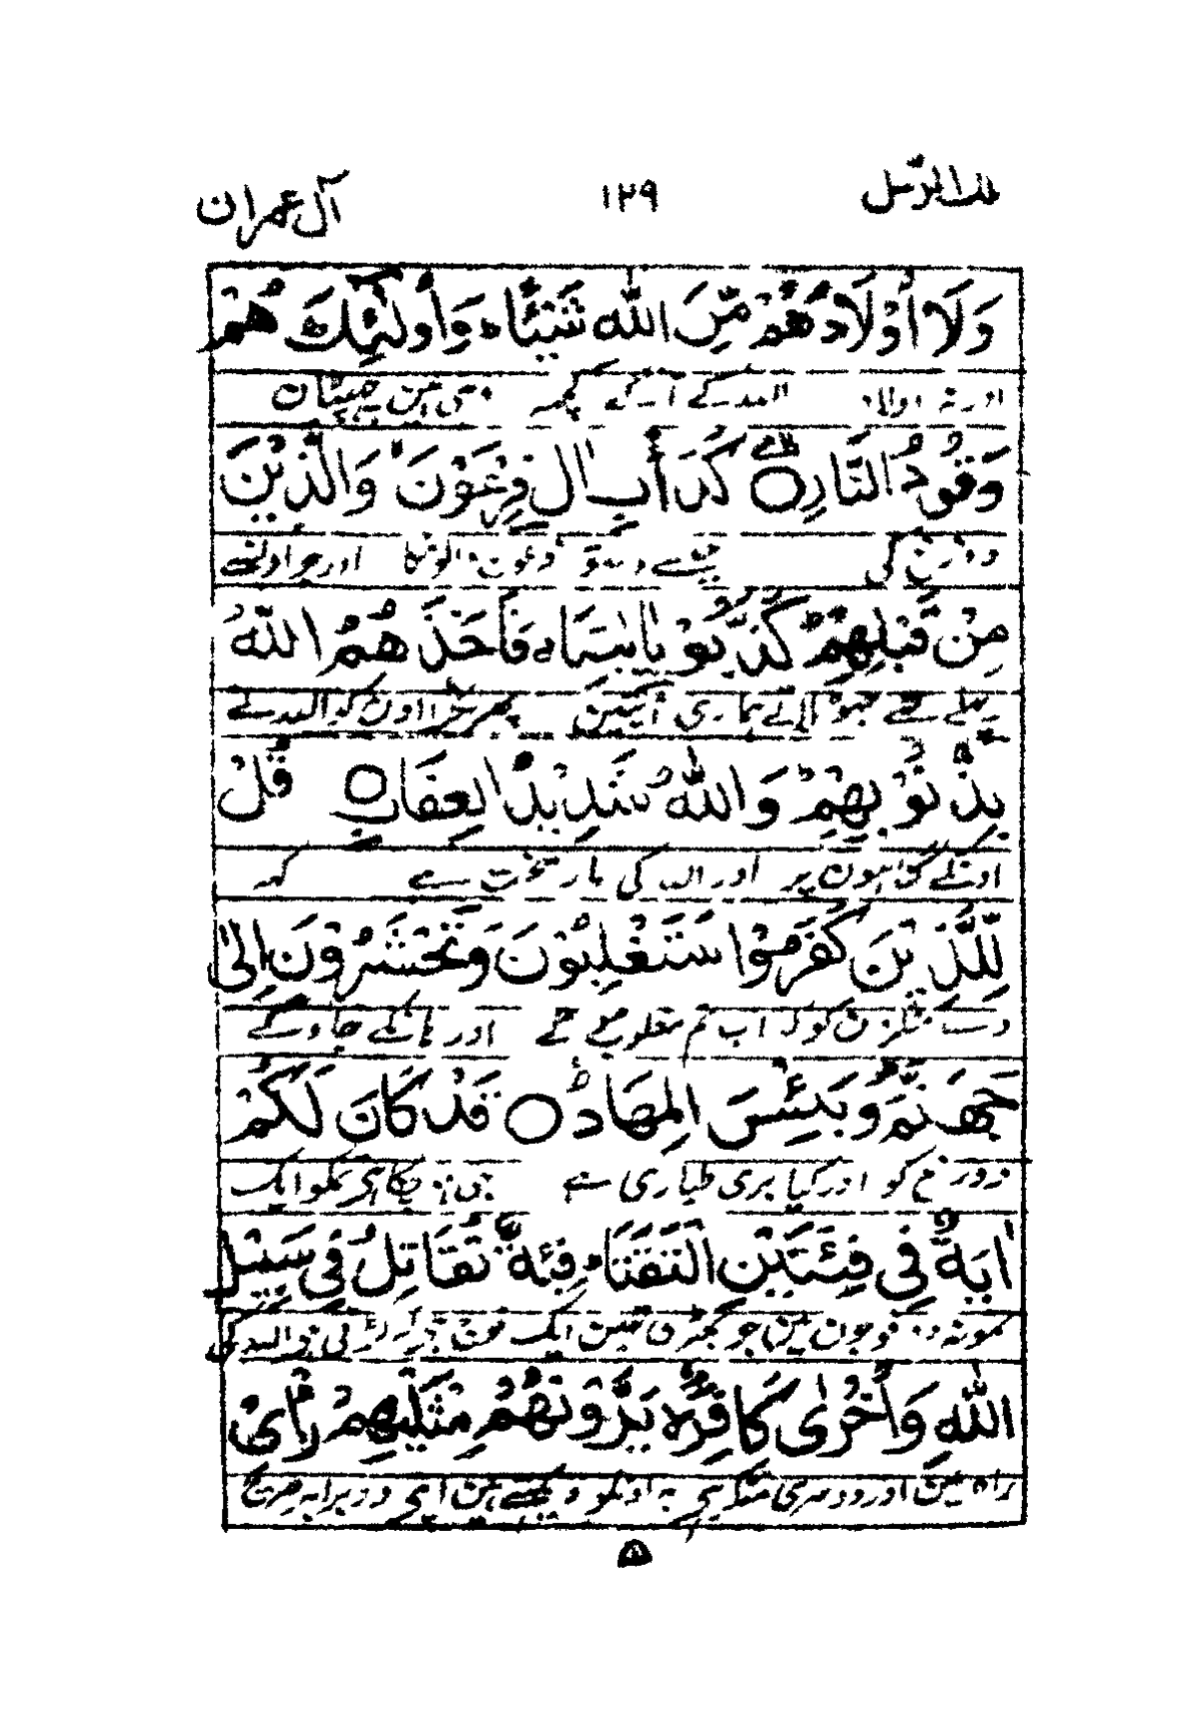 تلك الرسل ١٢٩ آل عمران
وَلَا أَوْلَادُهُمْ مِّنَ اللّٰهِ شَيْئًا ط وَأُولٰٓئِكَ هُمْ
اور نہ اولاد اللہ کے آگے کچھ وہی ہیں چھپٹیان
وَقُوْدُ النَّارِ ۝ كَدَأْبِ اٰلِ فِرْعَوْنَ وَالَّذِيْنَ
دوزخ کی جیسے دستور فرعون والونکا اور جو اونسے
مِنْ قَبْلِهِمْ ط كَذَّبُوْا بِاٰيٰتِنَا ج فَأَخَذَهُمُ اللّٰهُ
پہلے تھے جھوٹلائے ہماری آیتین پھر پکڑا اونکو اللہ نے
بِذُنُوْبِهِمْ وَاللّٰهُ شَدِيْدُ الْعِقَابِ ۝ قُلْ
اونکے گناہون پر اور اللہ کی مار سخت ہے کہہ
لِّلَّذِيْنَ كَفَرُوْا سَتُغْلَبُوْنَ وَتُحْشَرُوْنَ اِلٰى
دے منکرون کو کہ اب تم مغلوب ہوگے اور ہانکے جاوگے
جَهَنَّمَ وَبِئْسَ الْمِهَادُ ۝ قَدْ كَانَ لَكُمْ
دوزخ کو اور کیا بری طیاری ہے ہوچکا ہی تمکو ایک
اٰيَةٌ فِيْ فِئَتَيْنِ الْتَقَتَا ط فِئَةٌ تُقَاتِلُ فِيْ سَبِيْلِ
نمونہ دو فوجون مین جو بھڑی تھین ایک فوج لڑتی اللہ کی
اللّٰهِ وَأُخْرٰى كَافِرَةٌ يَّرَوْنَهُمْ مِّثْلَيْهِمْ رَأْيَ
راہ مین اور دوسری منکر ہی یہ اونکو دیکھتے ہین اپنے دو برابر صریح